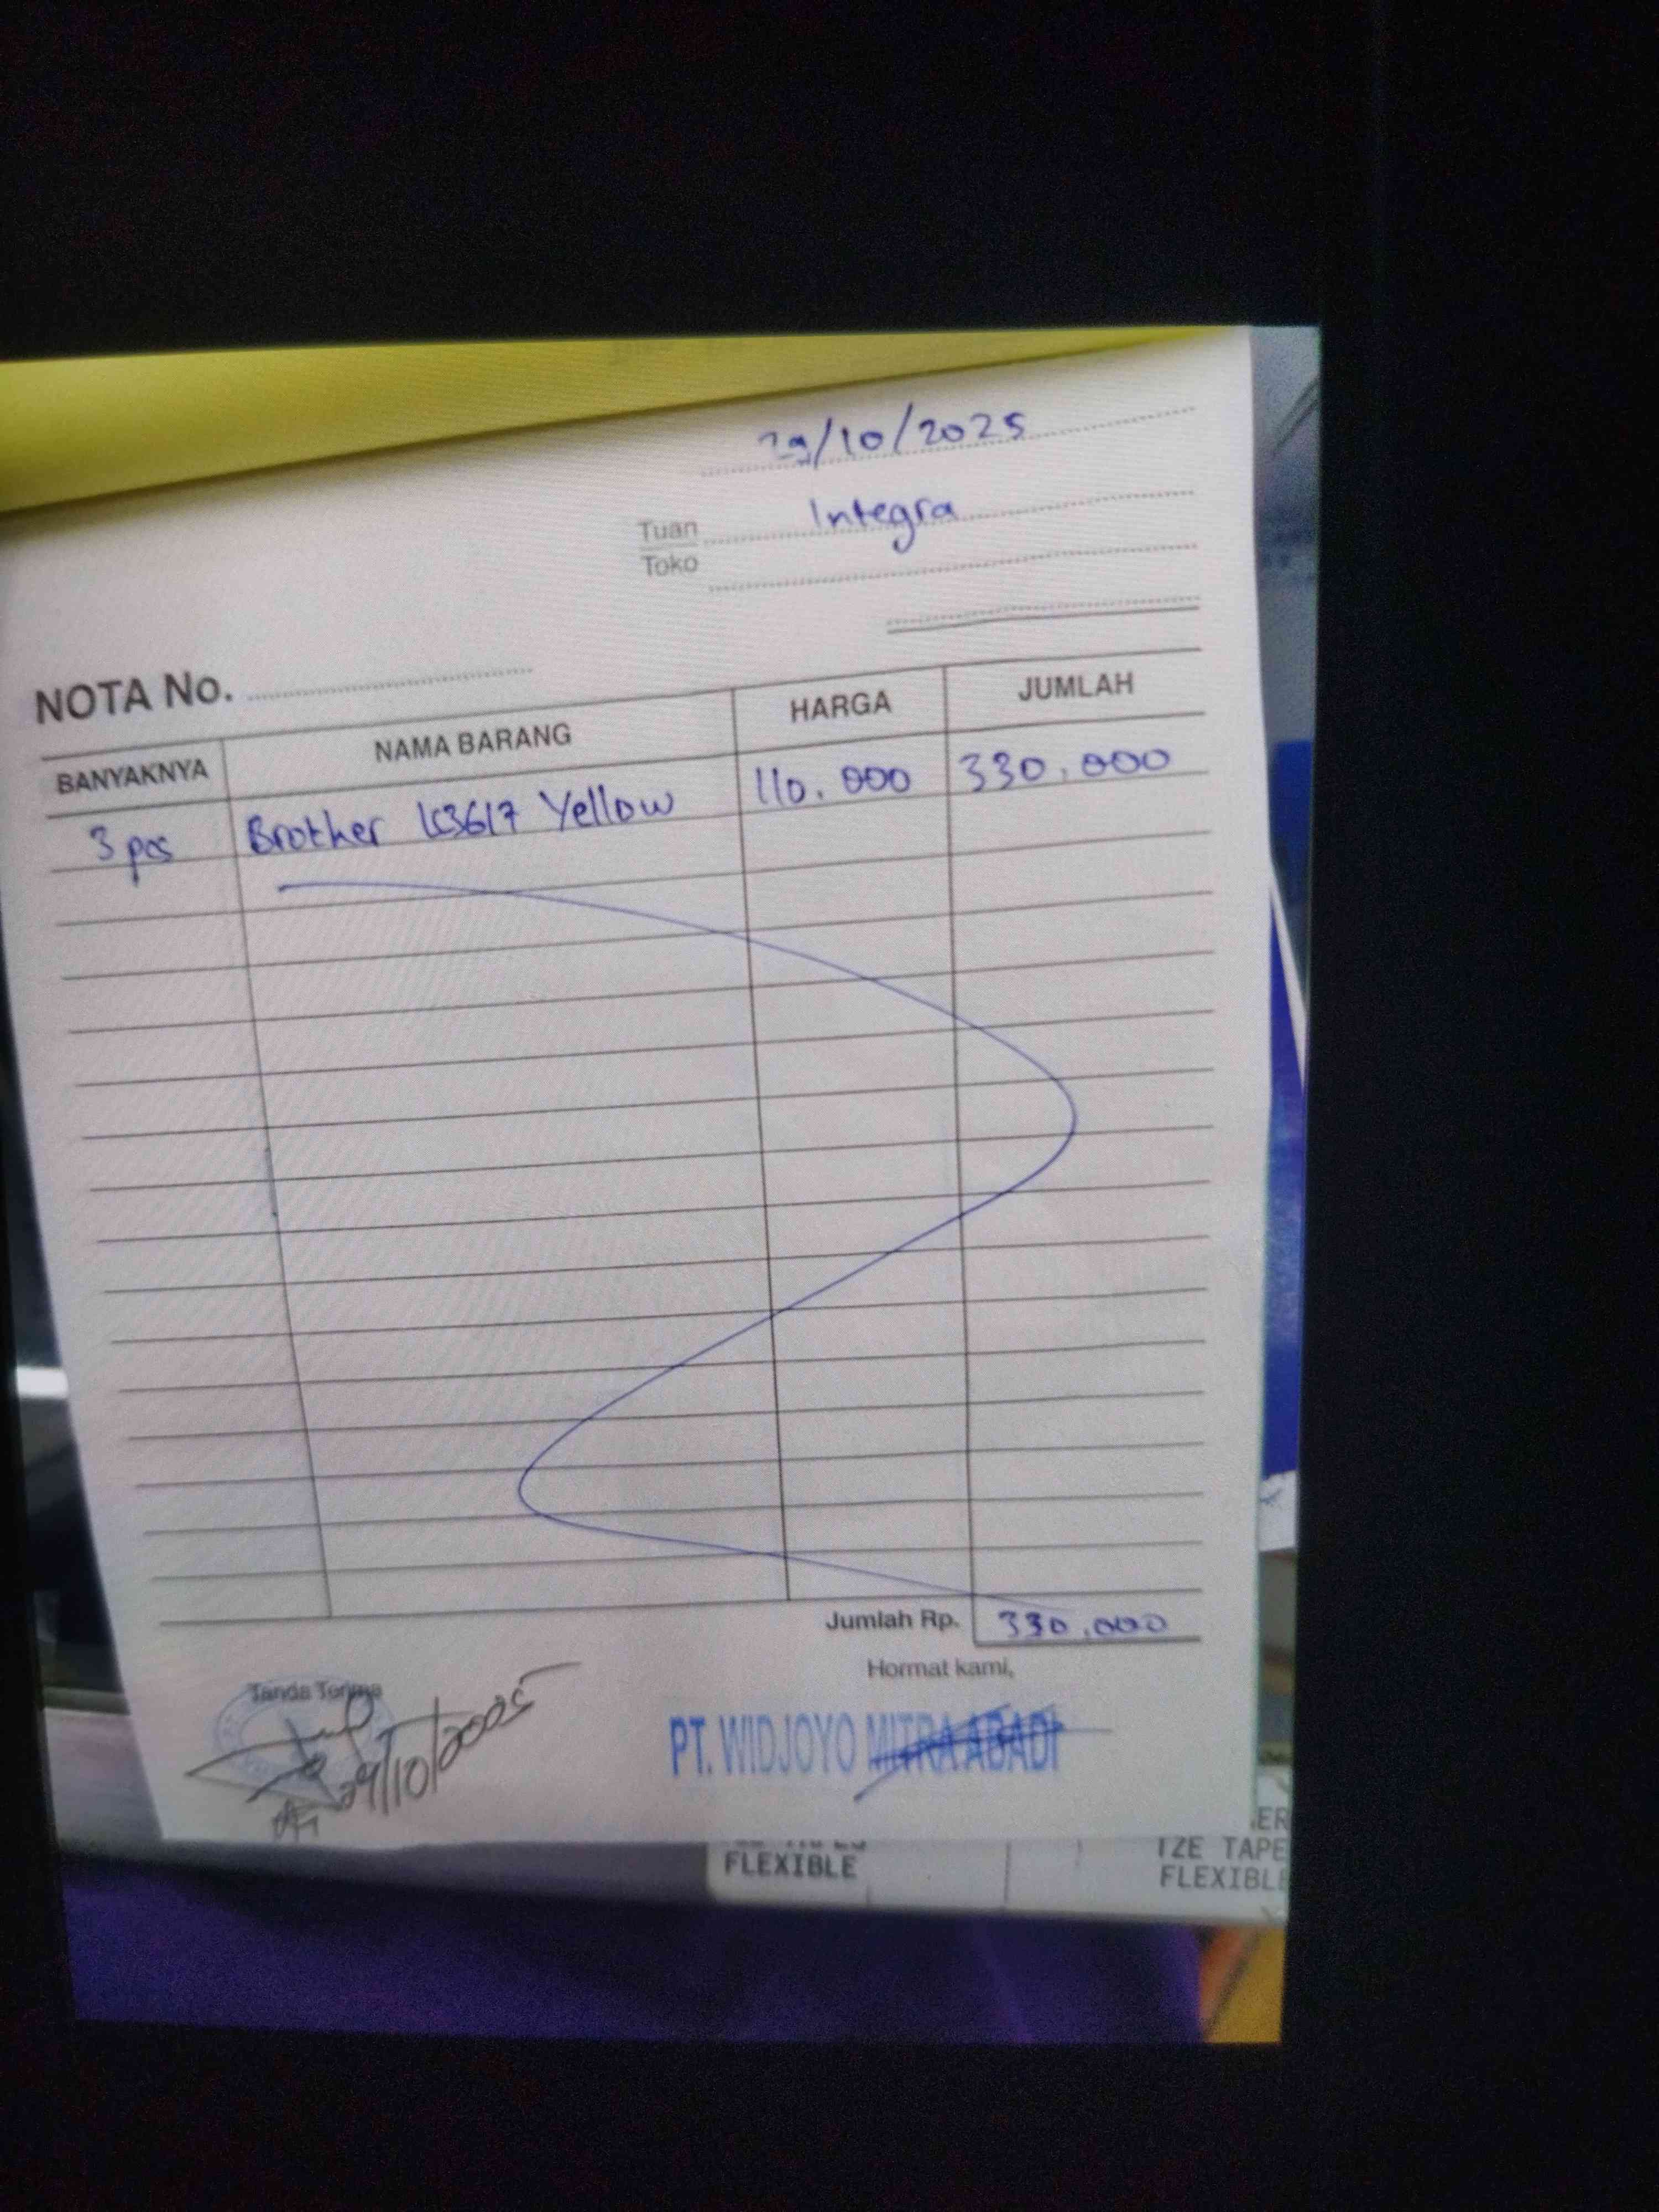 29/10/2025
Tuan Integra
Toko
NOTA No.
BANYAKNYA NAMA BARANG HARGA JUMLAH
3 pcs Brother LC3617 Yellow 110.000 330.000
Jumlah Rp. 330.000
Tanda Terima Hormat kami,
29/10/2025
PT. WIDJOYO MITRA ABADI
FLEXIBLE
TZE TAPE
FLEXIBLE